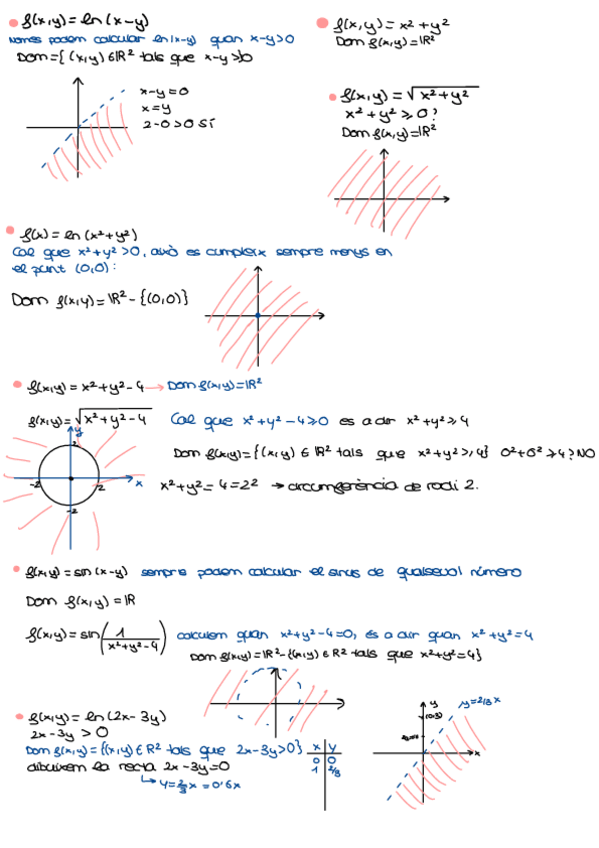 f(x,y)=ln(x-y)
Només podem calcular ln(x-y) quan x-y>0
Dom={(x,y)∈IR² tals que x-y>0
x-y=0
x=y
2-0>0 Sí
f(x,y)=x²+y²
Dom f(x,y)=IR²
f(x,y)=√x²+y²
x²+y²≥0?
Dom f(x,y)=IR²
f(x)=ln(x²+y²)
Cal que x²+y²>0, això es cumpleix sempre menys en
el punt (0,0):
Dom f(x,y)=IR²-{(0,0)}
f(x,y)=x²+y²-4→Dom f(x,y)=IR²
f(x,y)=√x²+y²-4 Cal que x²+y²-4≥0 és a dir x²+y²≥4
Dom f(x,y)={(x,y)∈IR² tals que x²+y²≥4} 0²+0²≥4? NO
y
2
-2
2
x
-2
x²+y²=4=2² → circumferència de radi 2.
f(x,y)=sin(x-y) sempre podem calcular el sinus de qualsevol número
Dom f(x,y)=IR
f(x,y)=sin(1/(x²+y²-4)) calculem quan x²+y²-4=0, és a dir quan x²+y²=4
Dom f(x,y)=IR²-{(x,y)∈R² tals que x²+y²=4}
f(x,y)=ln(2x-3y)
2x-3y>0
Dom f(x,y)={(x,y)∈R² tals que 2x-3y>0}
dibuixem la recta 2x-3y=0
↳ y=2/3x=0'6x
x y
0 0
1 2/3
y
y=2/3x
x